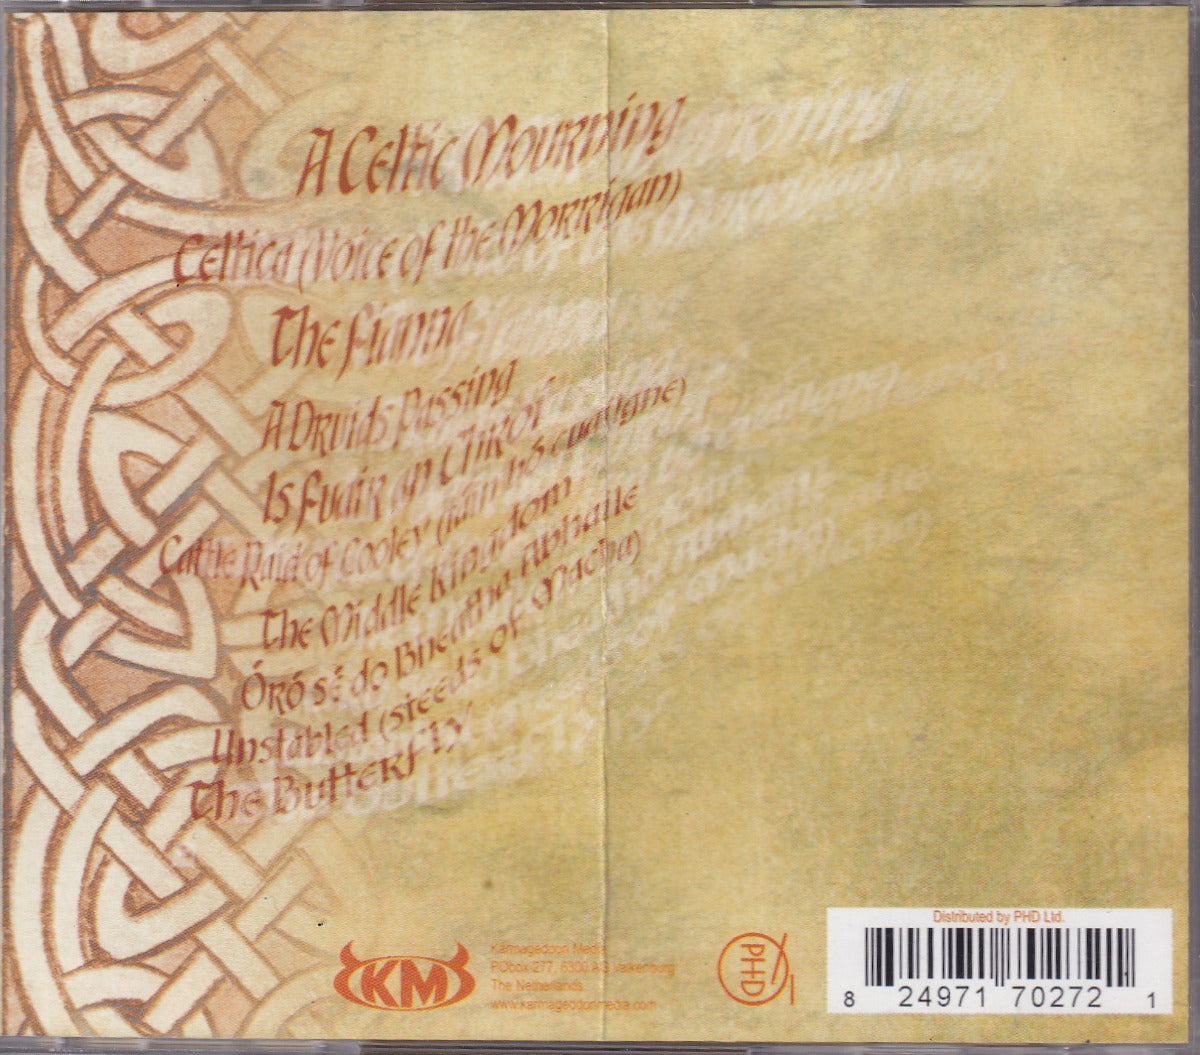 A Celtic Mourning
Celtica (Voice of the Morrigan)
The Fianna
A Druids Passing
Is Fuair an Chiroi
Cattle Raid of Cooley (táin bó cuailgne)
The Middle Kingdom
Óró sé do Bheatha Abhaile
Unstabled (steeds of Macha)
The Butterfly
KM
Karmageddon Media
PObox 277, 6300 AG
The Netherlands
www.karmageddonmedia.com
PHD
Distributed by PHD Ltd.
8 24971 70272 1